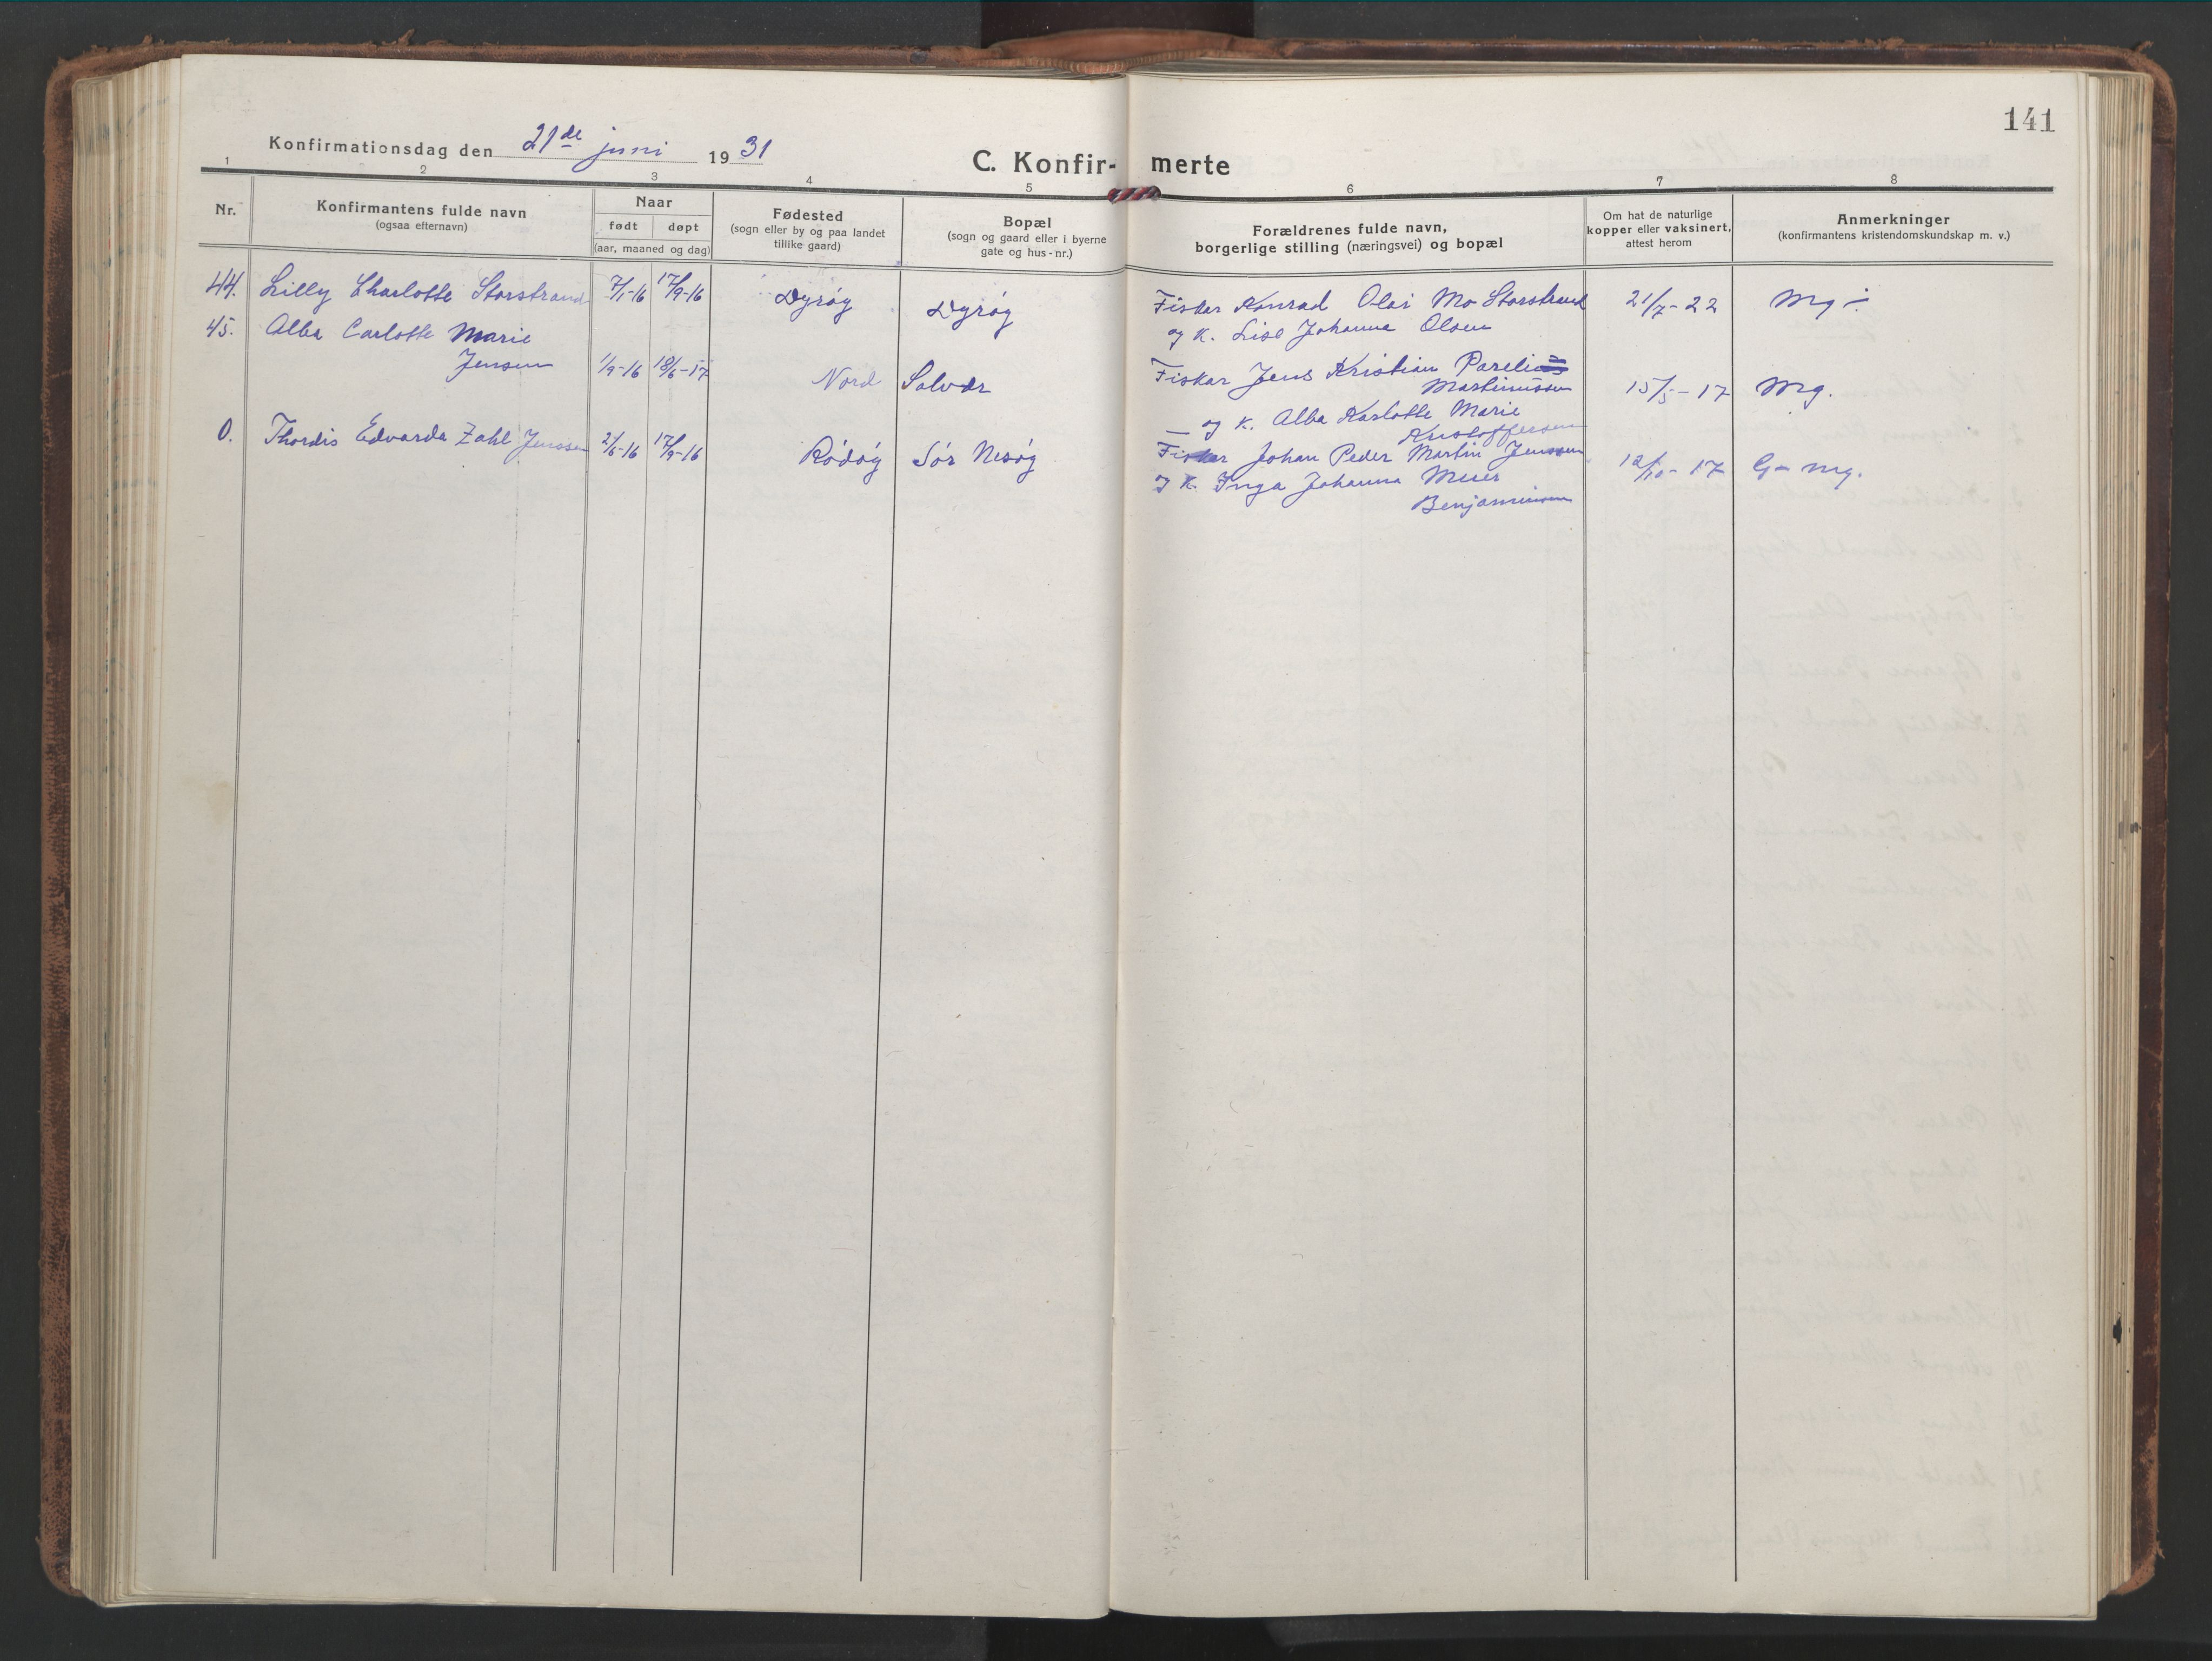 141
Konfirmationsdag den 21de juni 1931
C. Konfir- merte
1 2 3 4 5 6 7 8
Nr.
Konfirmantens fulde navn
(ogsaa efternavn)
Naar
født døpt
(aar, maaned og dag)
Fødested
(sogn eller by og paa landet
tillike gaard)
Bopæl
(sogn og gaard eller i byerne
gate og hus-nr.)
Forældrenes fulde navn,
borgerlige stilling (næringsvei) og bopæl
Om hat de naturlige
kopper eller vaksinert,
attest herom
Anmerkninger
(konfirmantens kristendomskundskap m. v.)
44. Lilly Charlotte Storstrand 7/1-16 17/9-16 Dyrøy Dyrøy Fiskar Konrad Olai Mo Storstrand 21/7-22 Mg ÷
og K. Lise Johanne Olsen
45. Alba Carlotte Marie
Jensen 1/9-16 18/6-17 Nord Solvær Fiskar Jens Kristian Parelius 15/5-17 Mg.
Martinussen
og K. Alba Karlotte Marie
Kristoffersen
0. Thordis Edvarda Zahl Jenssen 2/6-16 17/9-16 Rødøy Sør Nesøy Fiskar Johan Peder Martin Jenssen 12/10-17 G- mg.
og K. Inga Johanna Meier
Benjaminsen